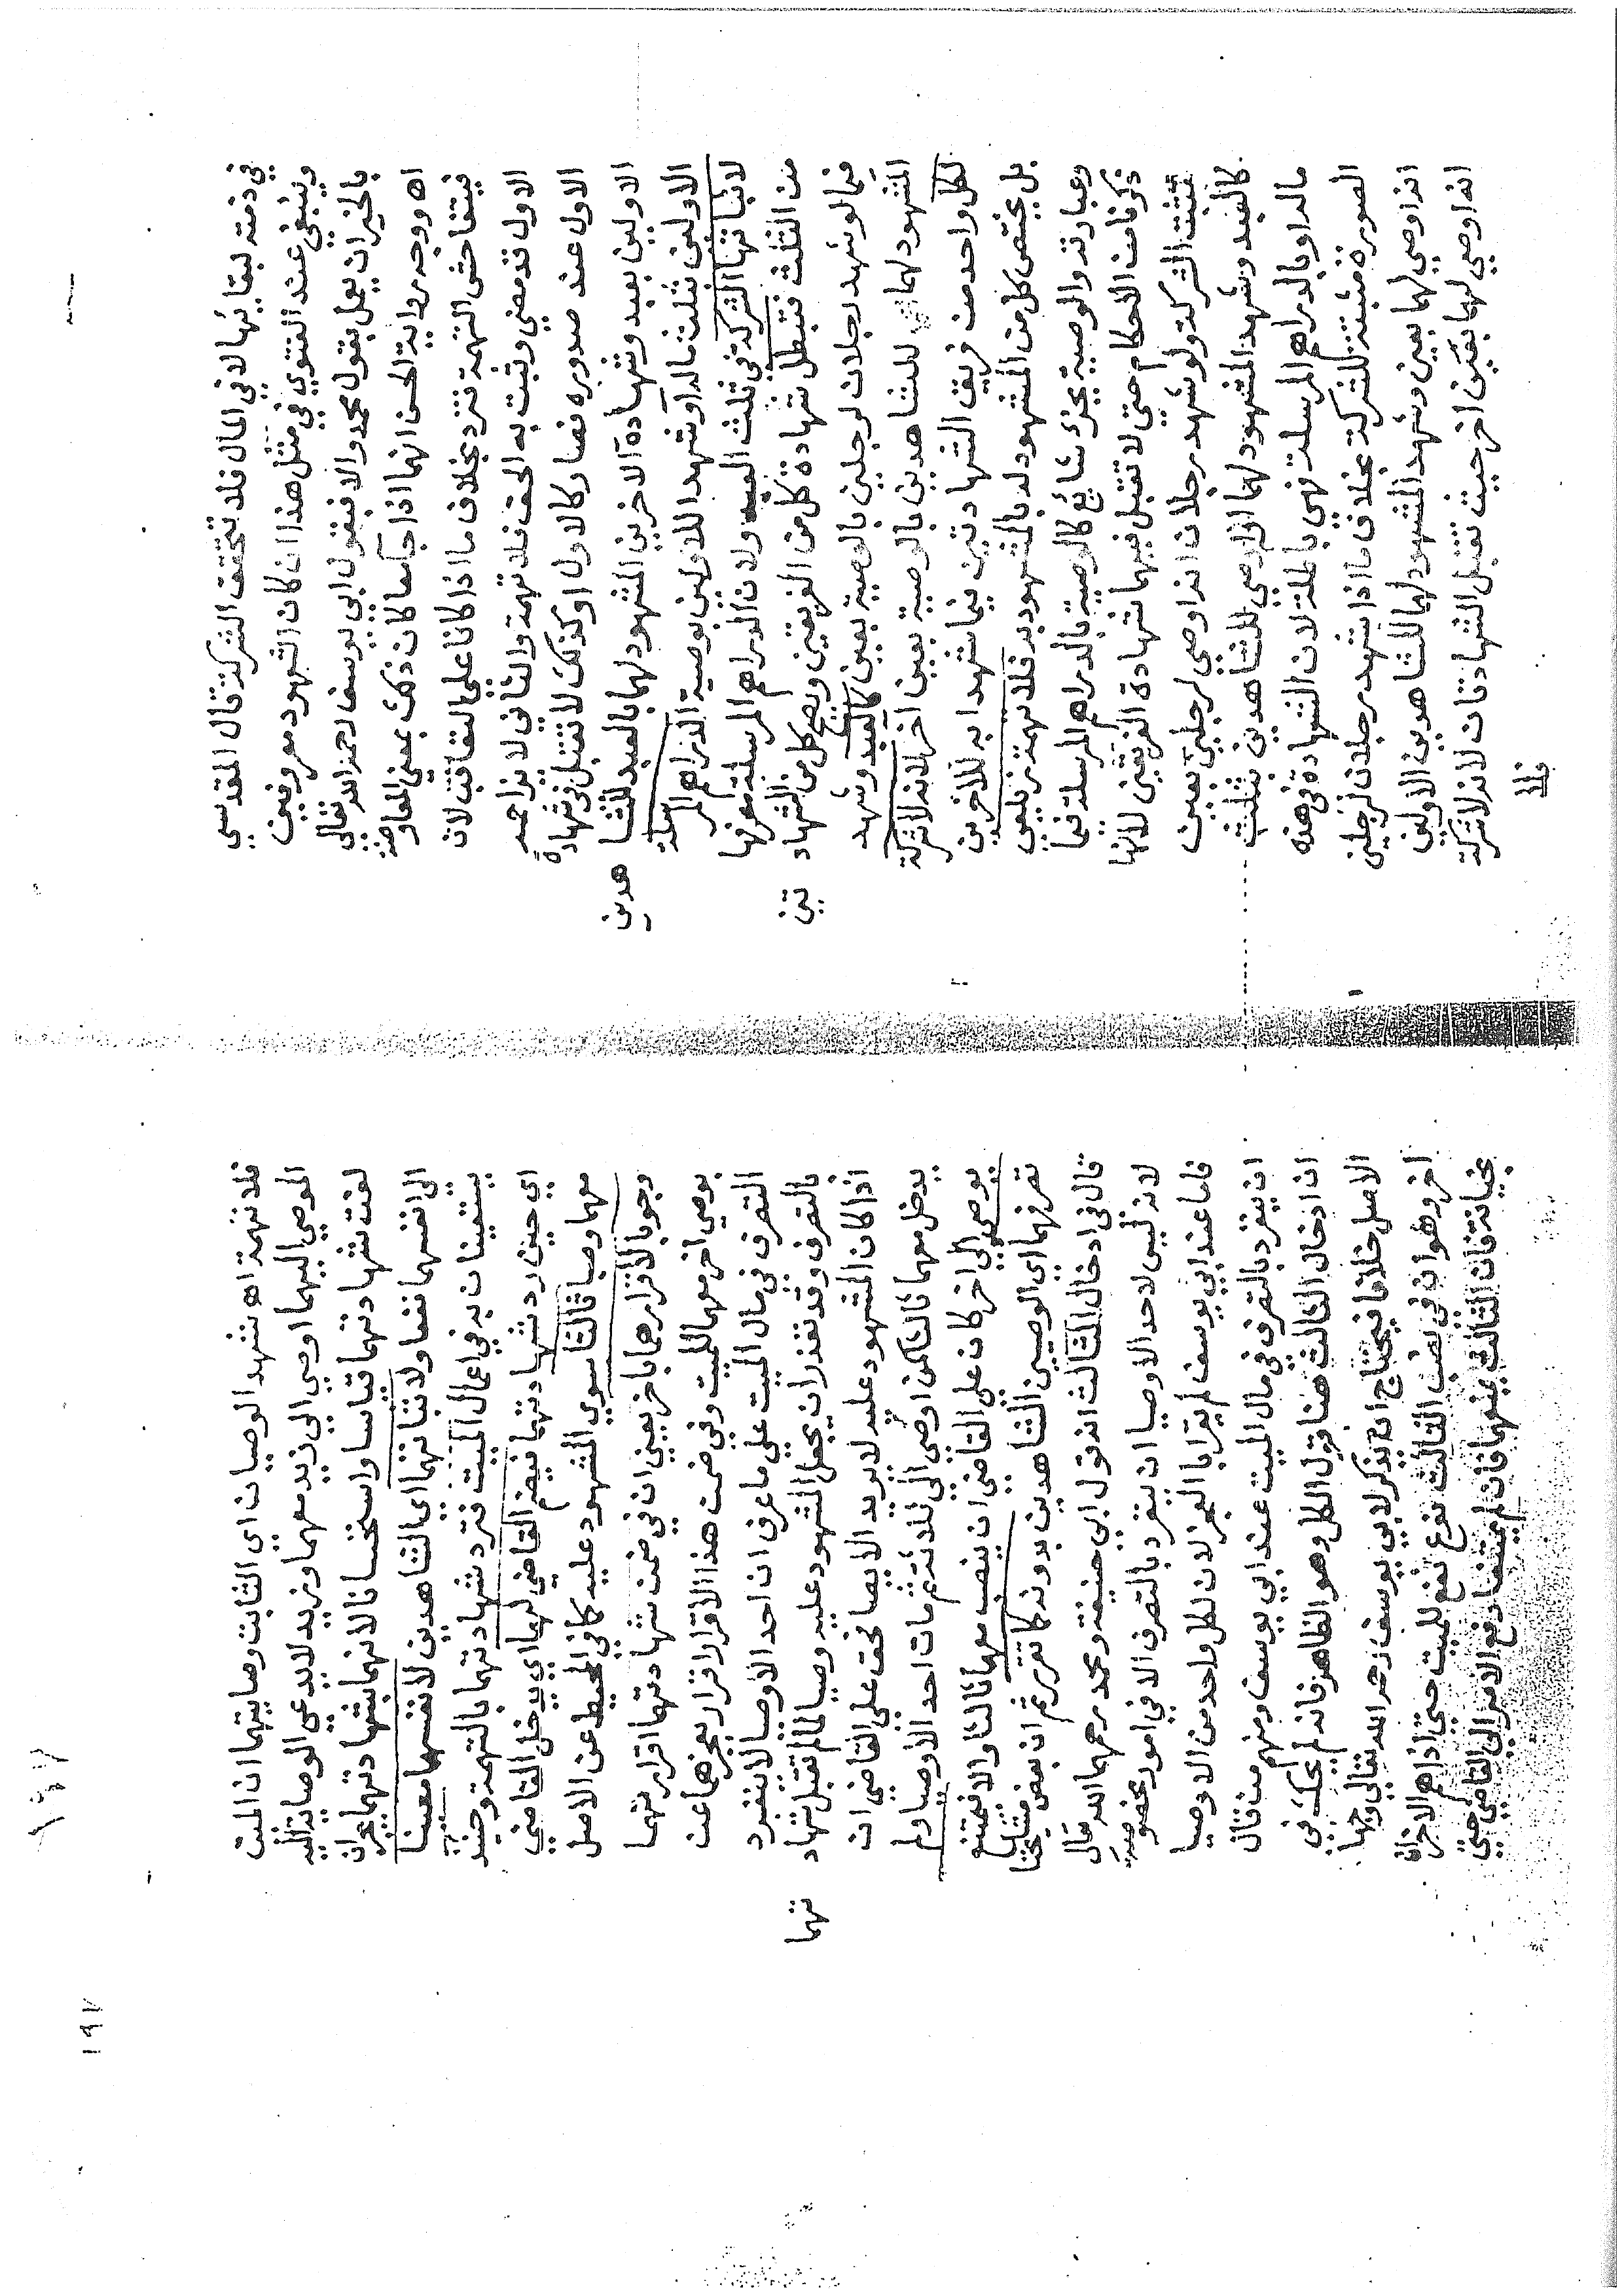 في ذمته لبقايها لا في المال فلا تتحقق الشركة قال المقدسي
وينبغي عند الفتوي في مثل هذا ان كان الشهود معروفين
بالخير ان يعمل بقول محمد والا فبقول ابي يوسف رحمه الله تعالي
اه ووجه رواية الحسن انهما اذا جآ معا كان ذلك بمعني المعاوضة
فيتفاحش التهمة فترد بخلاف ما اذا كانا علي التعاقب لان
الاول قد مضي وثبت به الحق فلا تهمة والثاني لا يزاحم
الاول عند صدوره فصار كالاول اوكذلك لا تقبل في شهادة
الاولين بعبد وشهادة الاخرين المشهود لهما بالعبد للشا هدين
الاولين بثلث ماله او شهد اللاولين بوصية الدراهم المرسلة
لاثباتها الشركة في ثلث العبد ولان الدراهم المرسلة معرفها
من الثلث فتبطل شهادة كل من الفريقين وتصح كل من الشهاد تين
فيما لو شهد رجلان لرجلين بالوصية بعين كالعبد وشهد
المشهود لهما للشاهدين بالوصية بعين اخر لانه لا شركة
لكل واحد من فريق الشهادتين فيما شهدا به للاخرين
بل يختص كل من المشهود له بالمشهود به فلا تهمة زيلعي
وعبارته والوصية بجزء شائع كالوصية بالدراهم المرسلة فيما
ذكرنا من الاحكام حتي لا تقبل فيهما شهادة الفريقين لانها
تثبت الشركة ولو شهد رجلان انه اوصي لرجلين بعين
كالعبد وشهد المشهود لهما انه اوصي للشاهدين بثلث
ماله او بالدراهم المرسلة فهي باطلة لان الشهادة في هذه
الصورة مثبتة للشركة بخلاف ما اذا شهد رجلان لرجلين
انه اوصي لهما بعين وشهد المشهود لهما للشاهدين الاولين
انه اوصي لهما بعين اخر حيث تقبل الشهادتان لانه لا شركة
فلا
فلا تهمة اه شهد الوصيان اي الثابت وصايتهما ان الميت
الموصي اليهما اوصي الي زيد معهما وزيد لا يدعي الوصاية اليه
لغت شهادتهما قياسا واستحسانا لانهما بشهادتهما يجران
الي انفسهما نفعا ولاثباتهما اي الشاهدين لانفسهما معينا
يستعينان به في اعمال الميت فترد شهادتهما بالتهمة وحينئذ
اي حين رد شهادتهما فيضم القاضي لهما اي يدخل القاضي
معهما وصيا ثالثا سوي المشهود عليه كما في المحيط عن الاصل
وجوبا لاقرارهما باخر يعني ان في ضمن شهادتهما اقرار منهما
بوصي اخر معهما للميت وفي ضمن هذا الاقرار اقرار بعجزهما عن
التصرف في مال الميت علي ما عرف ان احد الاوصيا لا ينفرد
بالتصرف وقد تعذر ان يجعل المشهود عليه وصيا لما لم تقبل شهاد تهما
اذا كان المشهود عليه لا يريد الايصا فحق علي القاضي ان
يدخل معهما ثالثا كمن اوصي الي ثلاثة ثم مات احد الاوصيا ولم
يوصي الي اخر كان علي القاضي ان ينصب معهما ثالثا والا فيمتنع
تصرفهما اي الوصيين الشاهدين بدونه كما تقرر ثم ان بعض مشايخنا
قال في ادخال الثالث انه قول ابي حنيفة ومحمد رحمهما الله قال
لانه ليس لاحد الاوصيا ان ينفرد بالتصرف الا في امور مخصوصة
فاما عند ابي يوسف لم يقرا بالعجز لان لكل واحد من الاوصيا
ان ينفرد بالتصرف في مال الميت عند ابي يوسف ومنهم من قال
ان ادخال الثالث هنا قول الكل وهو الظاهر فانه لم يحك في
الاصل خلافا فيحتاج ان يذكر لابي يوسف رحمه الله تعالي وجها
اخر وهو ان في نصب الثالث نوع نفع للميت حتي اذا هم الاخران
بخيانة فان الثالث يمنعهما فان لم يمتنعا رفع الامر الي القاضي حتي
١٩٧